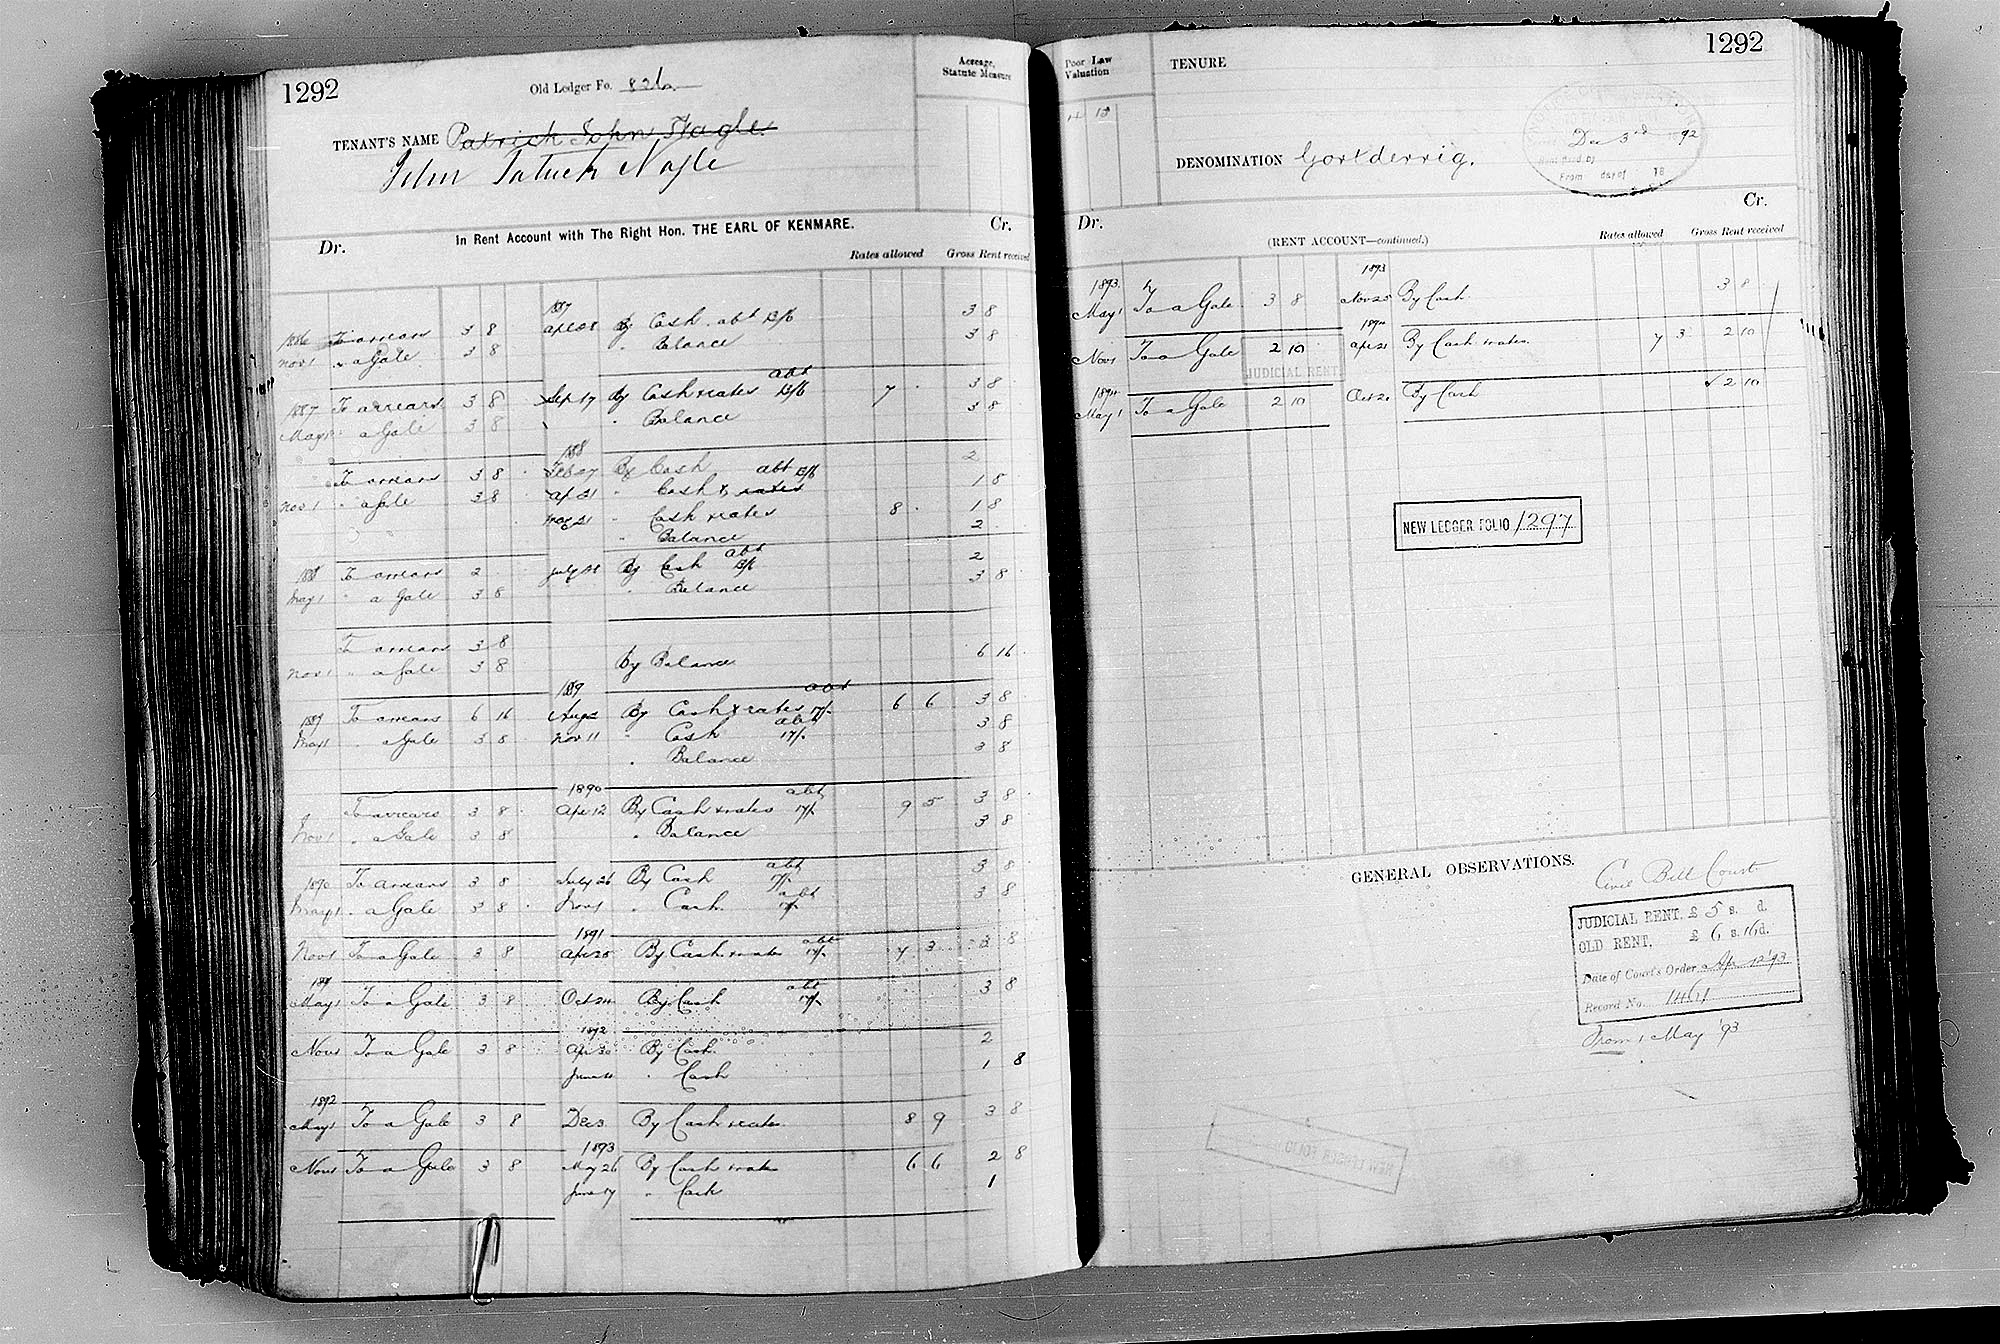 1292
Old Ledger Fo. 826
Acreage, Statute Measure
TENANT'S NAME Patrick John Nagle
John Patrick Nagle
In Rent Account with The Right Hon. THE EARL OF KENMARE.
Dr. Cr.
Rates allowed Gross Rent received
1887
1886 To arrears 3 8 By Cash abt 13/6 3 8
Nov 1 " a Gale 3 8 " Balance 3 8
1887 To arrears 3 8 Sep 17 By Cash & rates abt 13/6 7 3 8
May 1 " a Gale 3 8 " Balance 3 8
1888
To arrears 3 8 Feb 27 By Cash abt 13/6 2
Nov 1 " a Gale 3 8 Ap 21 " Cash & rates 1 8
May 21 " Cash & rates 8 1 8
" Balance 2
1888 To arrears 2 July 21 By Cash abt 13/6 2
May 1 " a Gale 3 8 " Balance 3 8
To arrears 3 8
Nov 1 " a Gale 3 8 By Balance 6 16
1889
1889 To arrears 6 16 Aug 2 By Cash & rates abt 17/- 6 6 3 8
May 1 " a Gale 3 8 Nov 11 " Cash abt 17/- 3 8
" Balance 3 8
1890
To arrears 3 8 Apr 12 By Cash & rates abt 17/- 9 5 3 8
Nov 1 " a Gale 3 8 " Balance 3 8
1890 To arrears 3 8 July 26 By Cash abt 17/- 3 8
May 1 " a Gale 3 8 Nov 1 " Cash abt 17/- 3 8
1891
Nov 1 To a Gale 3 8 Apr 25 By Cash & rates abt 17/- 7 3 3 8
1891
May 1 To a Gale 3 8 Oct 24 By Cash abt 17/- 3 8
1892
Nov 1 To a Gale 3 8 Apr 30 By Cash 2
June " Cash 1 8
1892
May 1 To a Gale 3 8 Dec 3 By Cash & rates 8 9 3 8
1893
Nov 1 To a Gale 3 8 May 26 By Cash & rates 6 6 2 8
June 17 " Cash 1
1292
Poor Law Valuation
TENURE
DENOMINATION Gortderrig.
Dec 3rd 1892
Rent paid by
From day of 18
Dr. Cr.
(RENT ACCOUNT—continued.)
Rates allowed Gross Rent received
1893. 1893
May 1 To a Gale 3 8 Nov 25 By Cash 3 8
1894
Nov 1 To a Gale 2 10 Apr 21 By Cash & rates 7 3 2 10
JUDICIAL RENT
1894
May 1 To a Gale 2 10 Oct 20 By Cash 2 10
NEW LEDGER FOLIO 1297
GENERAL OBSERVATIONS.
Civil Bill Court
JUDICIAL RENT, £ 5 s. d.
OLD RENT, £ 6 s. 16 d.
Date of Court's Order, Apr 12 '93
Record No. 1461
From 1 May '93
NEW LEDGER FOLIO